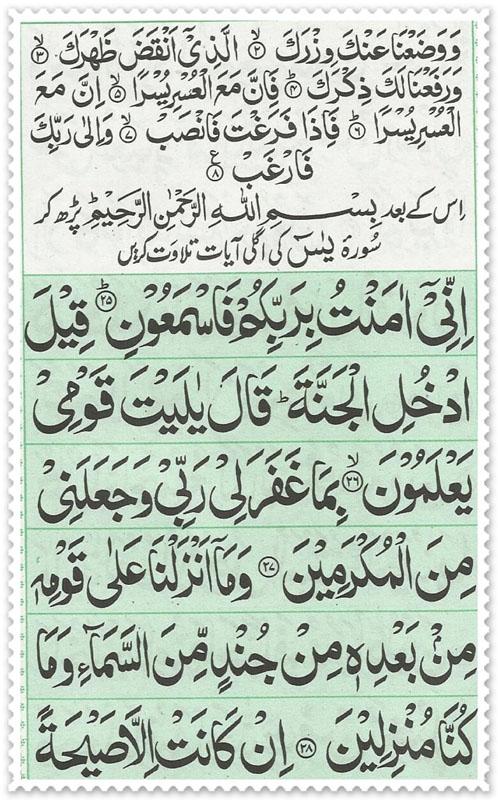 وَوَضَعْنَا عَنْكَ وِزْرَكَ ۙ﴿۲﴾ الَّذِیْۤ اَنْقَضَ ظَهْرَكَ ۙ﴿۳﴾
وَرَفَعْنَا لَكَ ذِكْرَكَ ؕ﴿۴﴾ فَاِنَّ مَعَ الْعُسْرِ یُسْرًا ۙ﴿۵﴾ اِنَّ مَعَ
الْعُسْرِ یُسْرًا ؕ﴿۶﴾ فَاِذَا فَرَغْتَ فَانْصَبْ ۙ﴿۷﴾ وَاِلٰى رَبِّكَ
فَارْغَبْ ﴿۸﴾ ع
اِس کے بعد بِسْمِ اللّٰهِ الرَّحْمٰنِ الرَّحِیْمِ پڑھ کر
سُورۂ یٰسٓ کی اگلی آیات تلاوت کریں
اِنِّیْۤ اٰمَنْتُ بِرَبِّكُمْ فَاسْمَعُوْنِ ؕ﴿۲۵﴾ قِیْلَ
ادْخُلِ الْجَنَّةَ ؕ قَالَ یٰلَیْتَ قَوْمِیْ
یَعْلَمُوْنَ ۙ﴿۲۶﴾ بِمَا غَفَرَ لِیْ رَبِّیْ وَجَعَلَنِیْ
مِنَ الْمُكْرَمِیْنَ ﴿۲۷﴾ وَمَاۤ اَنْزَلْنَا عَلٰى قَوْمِهٖ
مِنْۢ بَعْدِهٖ مِنْ جُنْدٍ مِّنَ السَّمَآءِ وَمَا
كُنَّا مُنْزِلِیْنَ ﴿۲۸﴾ اِنْ كَانَتْ اِلَّا صَیْحَةً